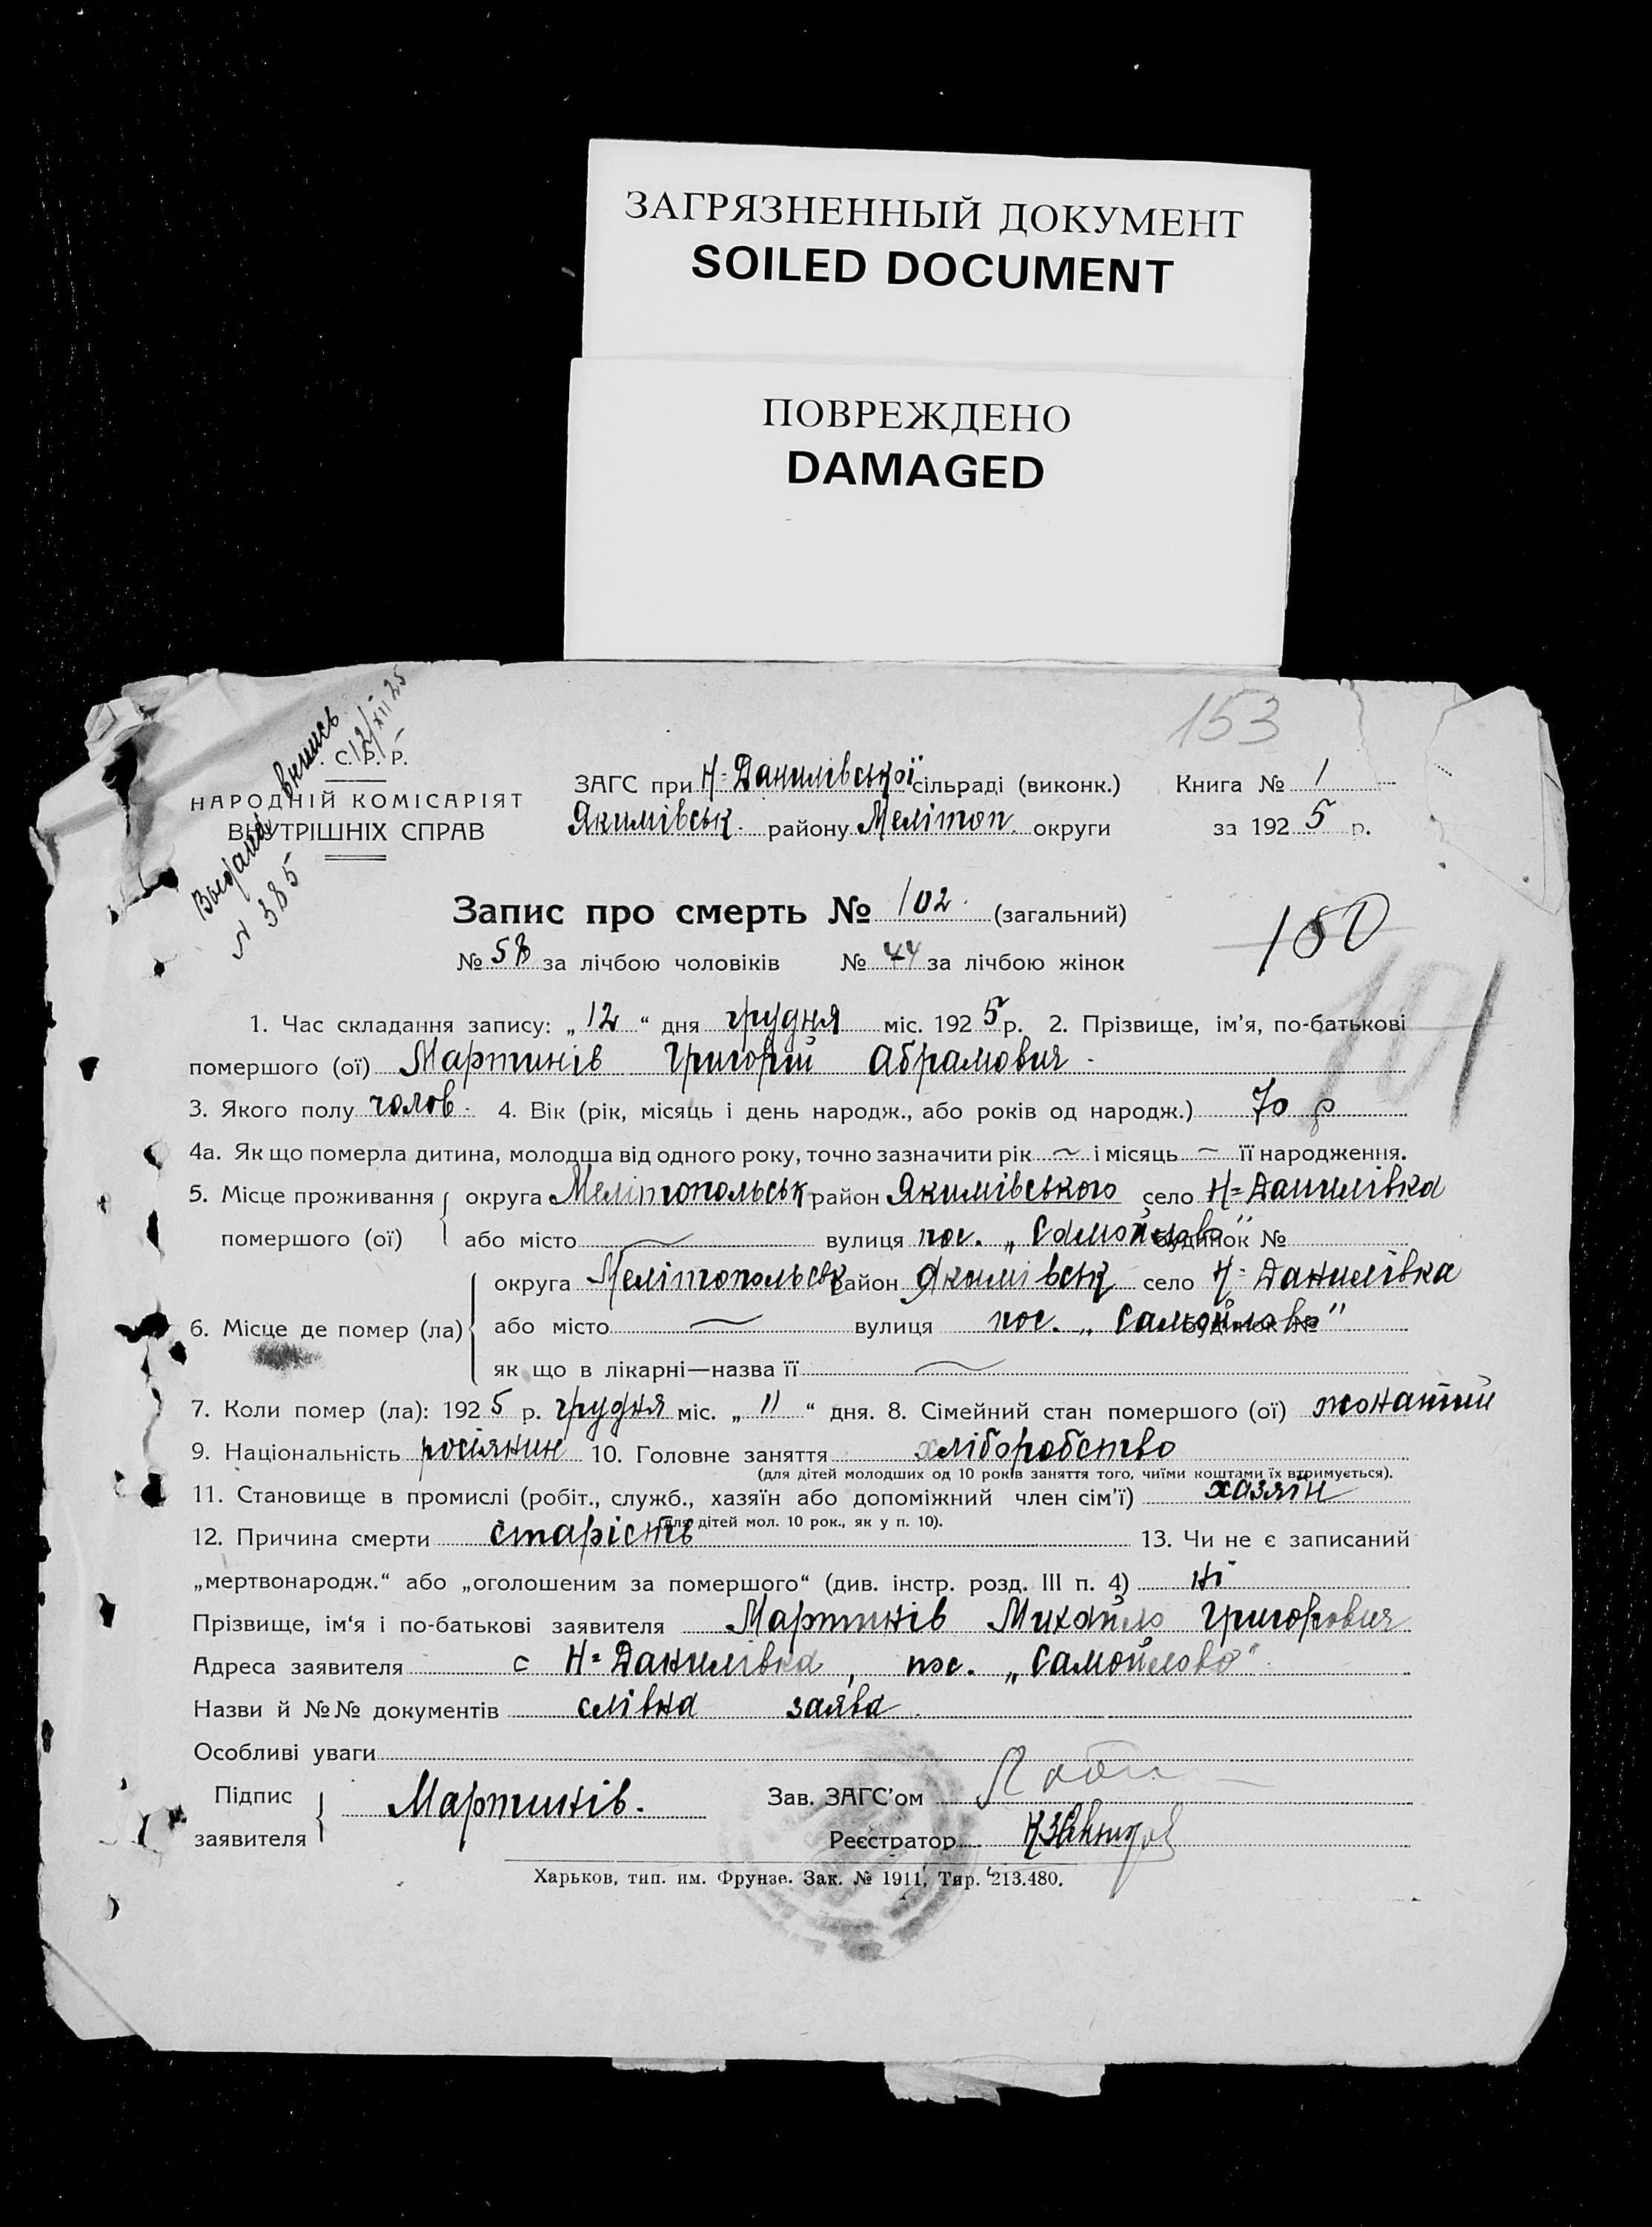 ЗАГРЯЗНЕННЫЙ ДОКУМЕНТ
SOILED DOCUMENT
ПОВРЕЖДЕНО
DAMAGED
153
12/XII 25
№ 385
С. Р. Р.
НАРОДНІЙ КОМІСАРІЯТ
ВНУТРІШНІХ СПРАВ
ЗАГС при Н-Данилівської сільраді (виконк.) Книга № 1
Якимівськ. району Мелітоп. округи за 1925 р.
Запис про смерть № 102. (загальний)
150
№ 58 за лічбою чоловіків № 44 за лічбою жінок
101
1. Час складання запису: „12“ дня грудня міс. 1925 р. 2. Прізвище, ім’я, по-батькові
помершого (ої) Мартинів Григорій Абрамович
3. Якого полу чолов. 4. Вік (рік, місяць і день народж., або років од народж.) 70 р
4а. Як що померла дитина, молодша від одного року, точно зазначити рік ~ і місяць ~ її народження.
5. Місце проживання округа Мелітопольськ район Якимівського село Н-Данилівка
помершого (ої) або місто вулиця пос. „Самойлово“ будинок №
округа Мелітопольськ район Якимівськ село Н-Данилівка
6. Місце де помер (ла) або місто вулиця пос. „Самойлово“ будинок №
як що в лікарні—назва її
7. Коли помер (ла): 1925 р. грудня міс. „11“ дня. 8. Сімейний стан помершого (ої) жонатий
9. Національність росіянин 10. Головне заняття хліборобство
(для дітей молодших од 10 років заняття того, чиїми коштами їх втримується).
11. Становище в промислі (робіт., служб., хазяїн або допоміжний член сім’ї) хазяїн
(для дітей мол. 10 рок., як у п. 10).
12. Причина смерти старість 13. Чи не є записаний
„мертвонародж.“ або „оголошеним за помершого“ (див. інстр. розд. III п. 4) ні
Прізвище, ім‘я і по-батькові заявителя Мартинів Михайло Григорович
Адреса заявителя с Н-Данилівка, пос. „Самойлово“
Назви й №№ документів слівна заява.
Особливі уваги
Підпис заявителя Мартинів. Зав. ЗАГС’ом
Реєстратор
Харьков, тип. им. Фрунзе. Зак. № 1911, Тир. 213.480.